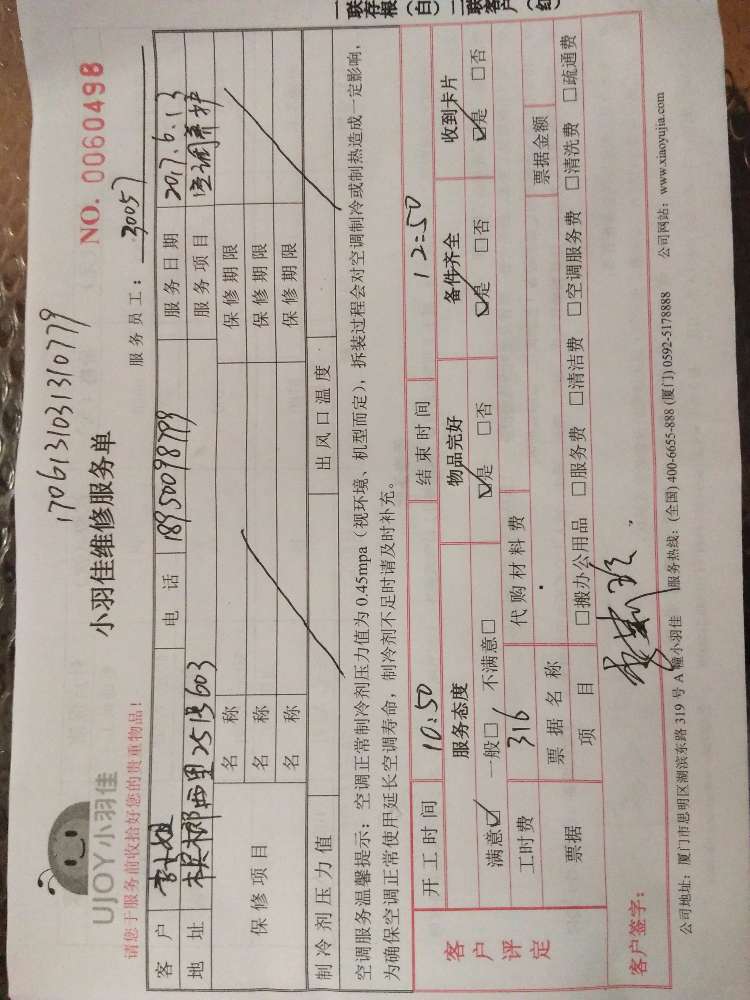 一联存根（白）二联客户（红
UJOY小羽佳
1706131031310779
小羽佳维修服务单
NO. 0060498
请您于服务前收拾好您的贵重物品！
服务员工：30057
客户 电话 18950098793 服务日期 2017.6.13
地址 西里25号603 服务项目 空调养护
保修项目 名称 保修期限
名称 保修期限
名称 保修期限
制冷剂压力值 出风口温度
空调服务温馨提示：空调正常制冷剂压力值为0.45mpa（视环境、机型而定），拆装过程会对空调制冷或制热造成一定影响，
为确保空调正常使用延长空调寿命，制冷剂不足时请及时补充。
客户评定
开工时间 10:50 结束时间 12:50
服务态度 物品完好 备件齐全 收到卡片
满意☑ 一般□ 不满意□ ☑是 □否 ☑是 □否 ☑是 □否
工时费 316 代购材料费
票据 票据名称 票据金额
项目 □搬办公用品 □服务费 □清洁费 □空调服务费 □清洗费 □疏通费
客户签字：
公司地址：厦门市思明区湖滨东路319号A幢小羽佳 服务热线：(全国) 400-6655-888 (厦门) 0592-5178888 公司网站：www.xiaoyujia.com